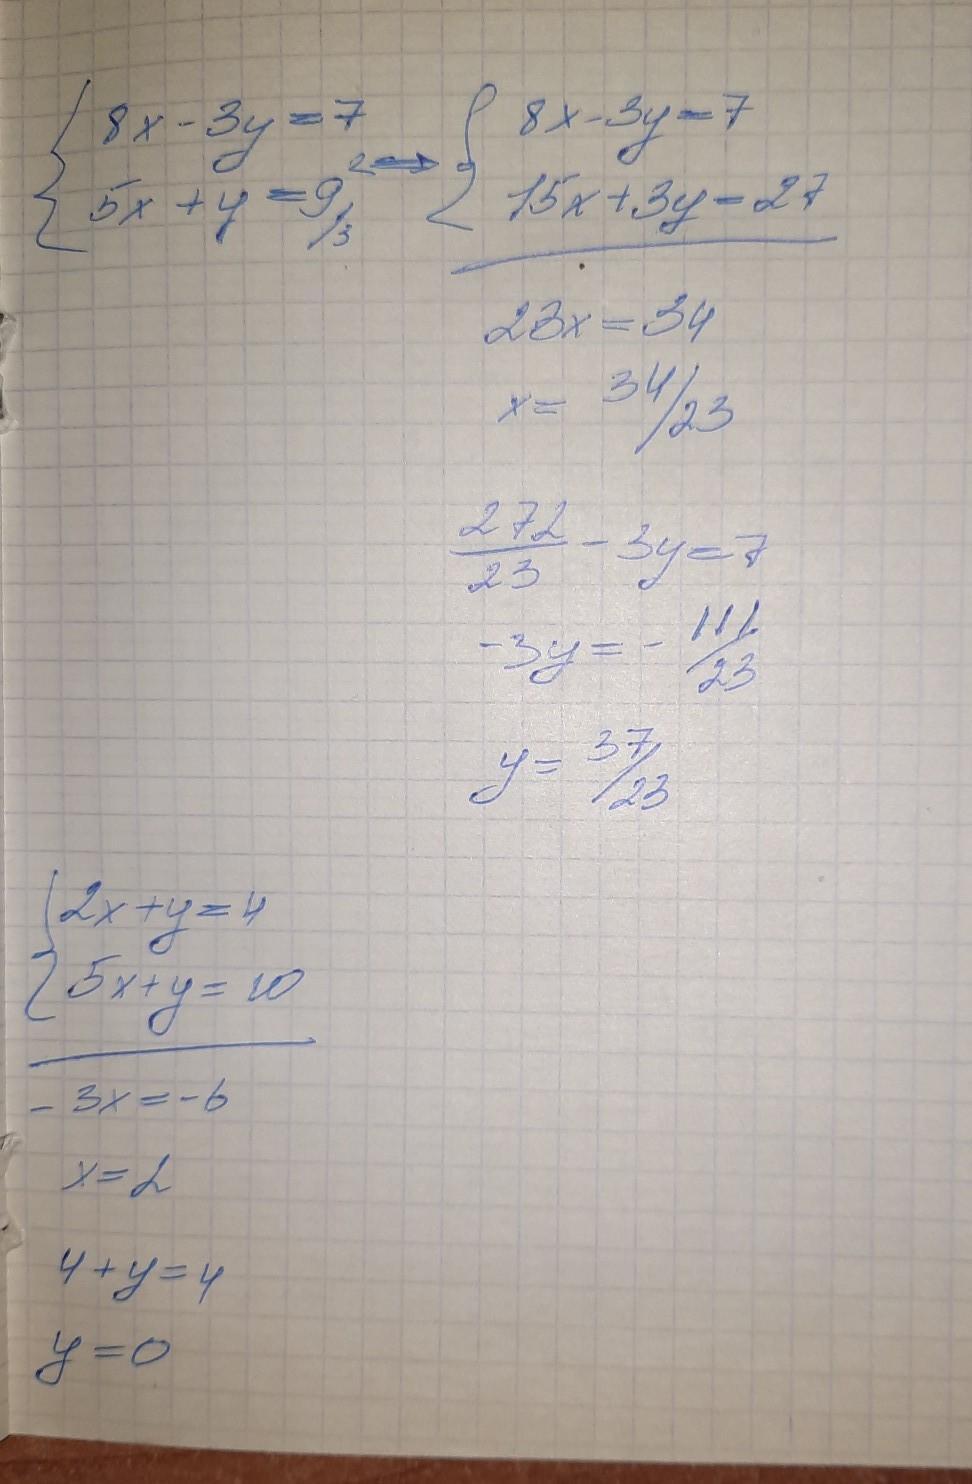 8x-3y=7
5x+y=9/3
2⇒
8x-3y=7
15x+3y=27
23x=34
x= 34/23
272/23 - 3y=7
-3y= - 111/23
y= 37/23
2x+y=4
5x+y=10
-3x=-6
x=2
4+y=4
y=0